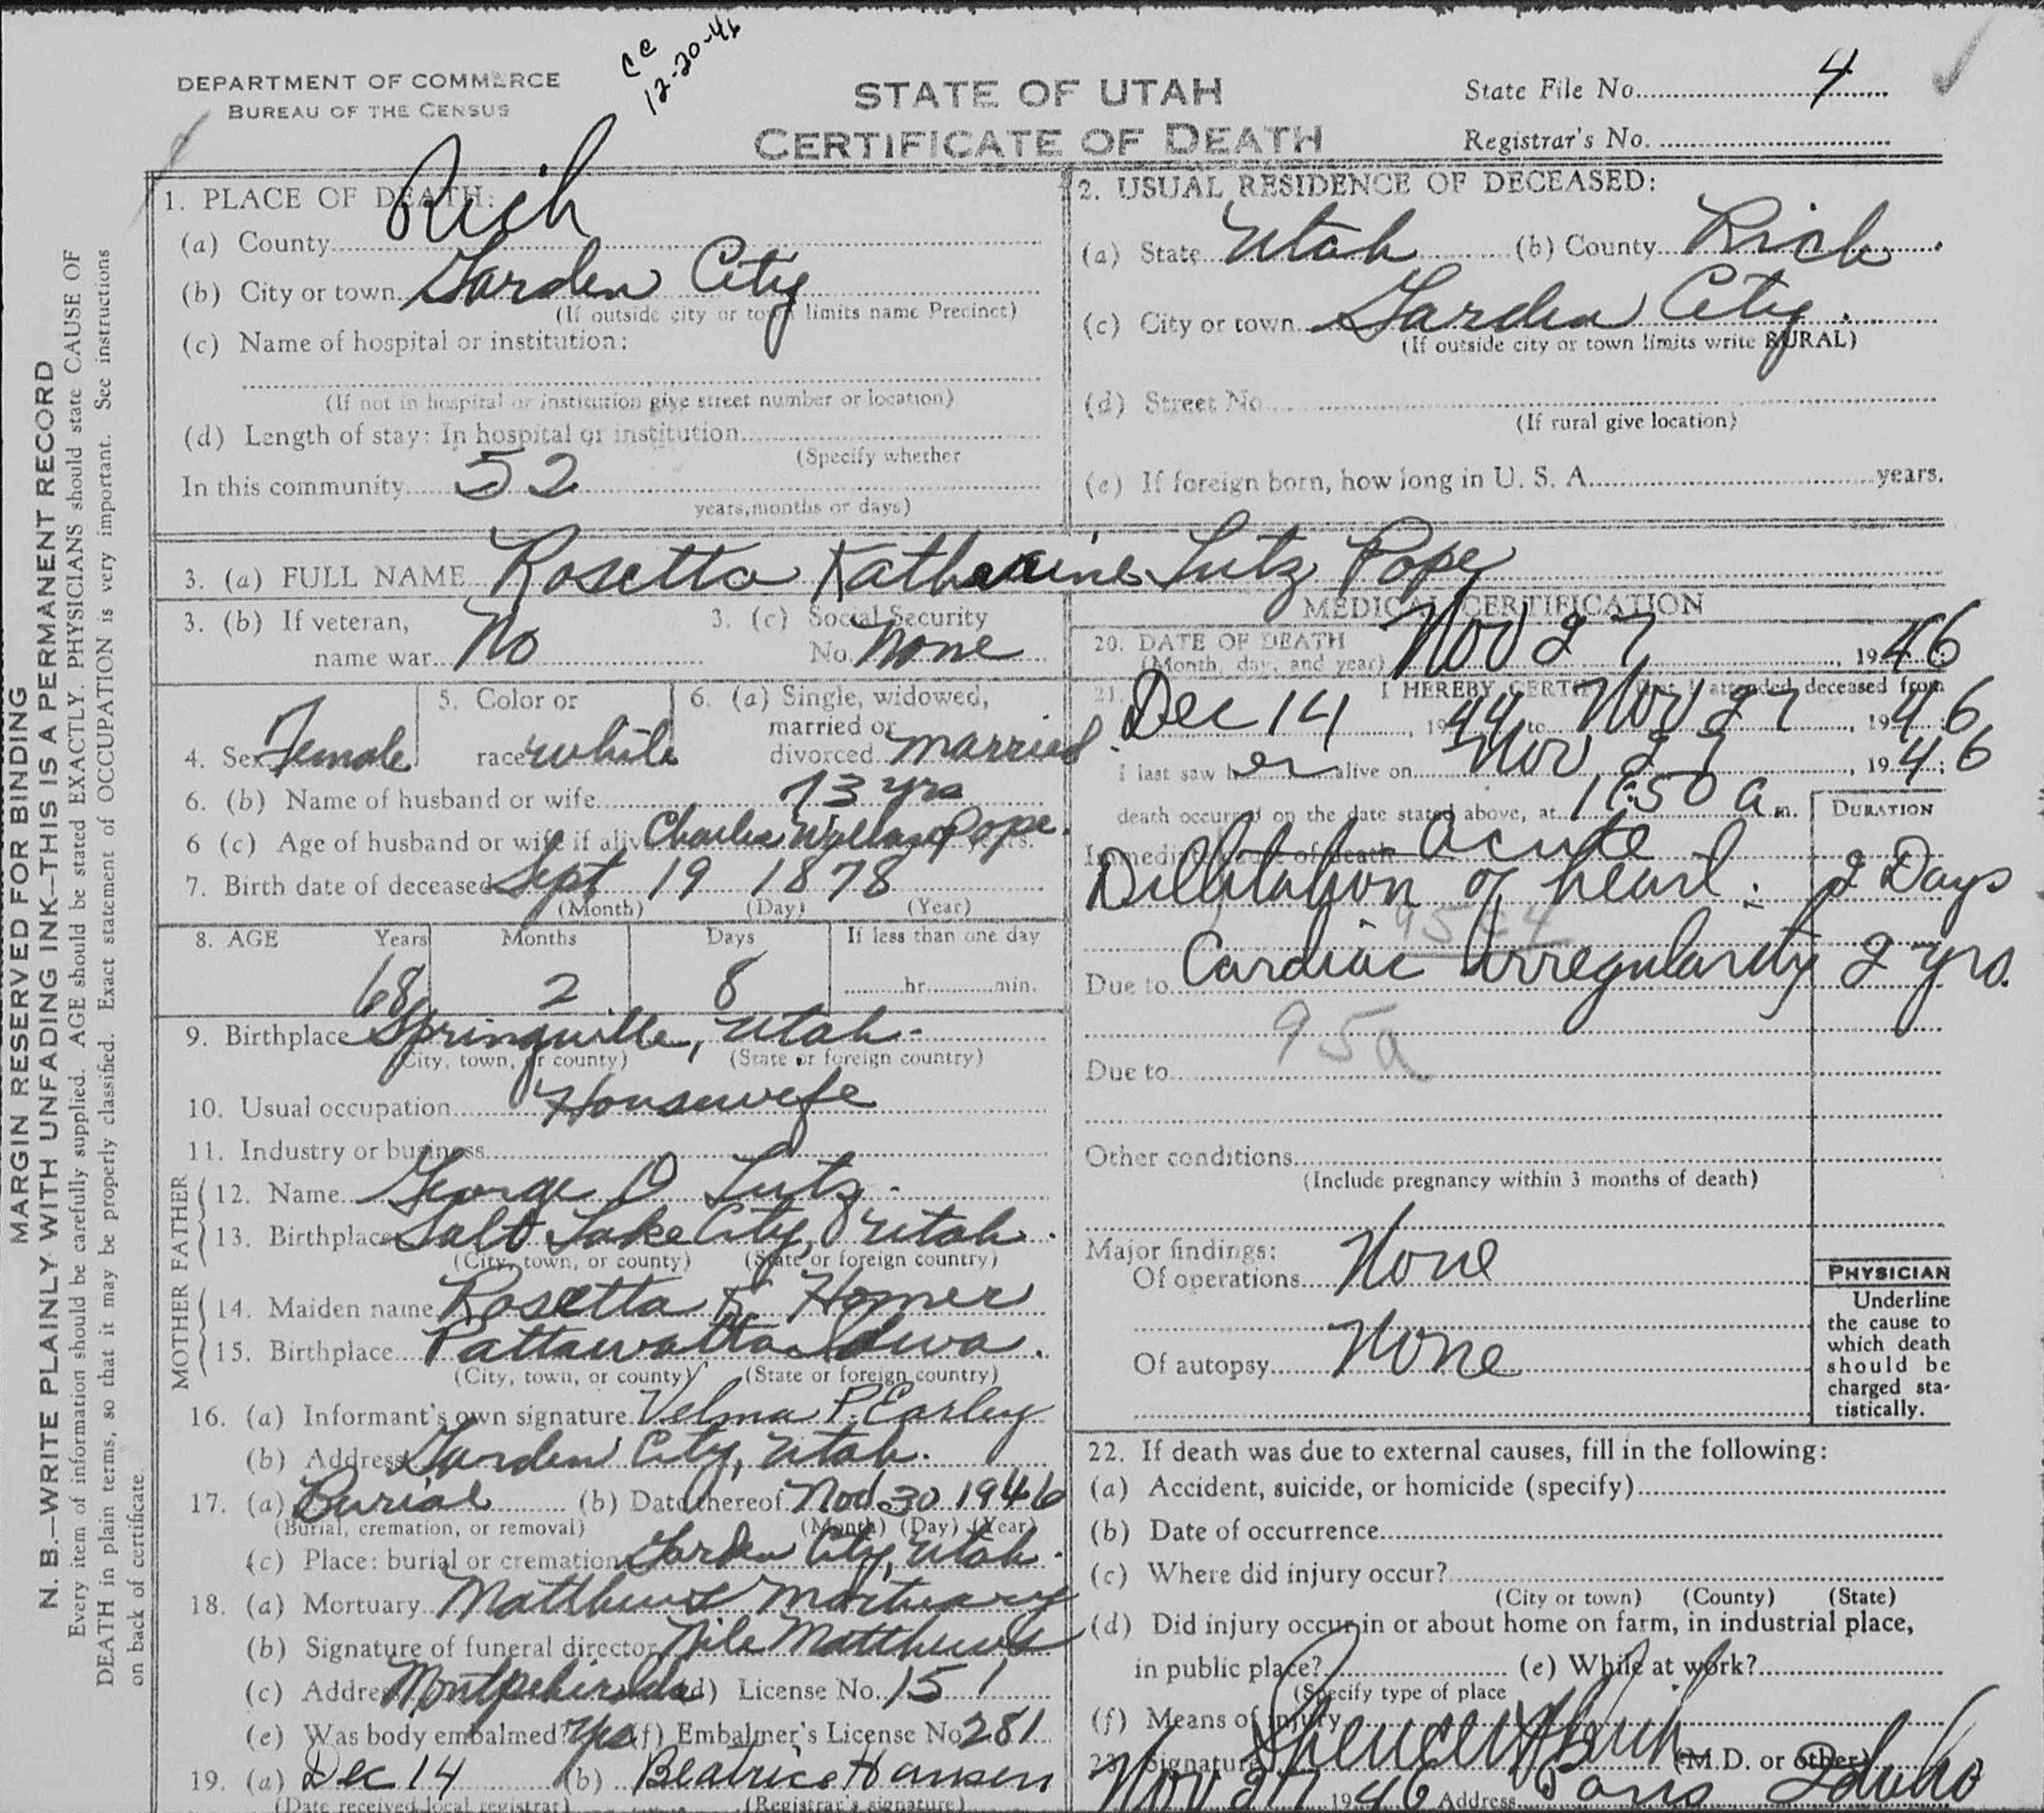 CC
12-20-46
DEPARTMENT OF COMMERCE
BUREAU OF THE CENSUS
STATE OF UTAH
CERTIFICATE OF DEATH
State File No. 4
Registrar's No.
MARGIN RESERVED FOR BINDING
N. B.—WRITE PLAINLY WITH UNFADING INK—THIS IS A PERMANENT RECORD
Every item of information should be carefully supplied. AGE should be stated EXACTLY. PHYSICIANS should state CAUSE OF
DEATH in plain terms, so that it may be properly classified. Exact statement of OCCUPATION is very important. See instructions
on back of certificate
1. PLACE OF DEATH:
(a) County Rich
(b) City or town Garden City
(If outside city or town limits name Precinct)
(c) Name of hospital or institution:
(If not in hospital or institution give street number or location)
(d) Length of stay: In hospital or institution
(Specify whether
In this community 52
years, months or days)
2. USUAL RESIDENCE OF DECEASED:
(a) State Utah (b) County Rich
(c) City or town Garden City
(If outside city or town limits write RURAL)
(d) Street No.
(If rural give location)
(e) If foreign born, how long in U. S. A. years.
3. (a) FULL NAME Rosetta Katharine Lutz Pope
3. (b) If veteran, name war No
3. (c) Social Security No. None
4. Sex Female
5. Color or race white
6. (a) Single, widowed, married or divorced married
6. (b) Name of husband or wife 73 yrs
6 (c) Age of husband or wife if alive Charles Pope. years.
7. Birth date of deceased Sept 19 1878
(Month) (Day) (Year)
8. AGE Years Months Days If less than one day
68 2 8 hr. min.
9. Birthplace Springville, Utah
(City, town, or county) (State or foreign country)
10. Usual occupation Housewife
11. Industry or business
FATHER
12. Name George D Lutz
13. Birthplace Salt Lake City, Utah.
(City, town, or county) (State or foreign country)
MOTHER
14. Maiden name Rosetta K. Homer
15. Birthplace Pattawatta Iowa.
(City, town, or county) (State or foreign country)
16. (a) Informant's own signature Velma P. Earley
(b) Address Garden City, Utah.
17. (a) Burial (b) Date thereof Nov. 30 1946
(Burial, cremation, or removal) (Month) (Day) (Year)
(c) Place: burial or cremation Garden City, Utah.
18. (a) Mortuary Matthews Mortuary
(b) Signature of funeral director Nile Matthews
(c) Address Montpelier Ida (d) License No. 151
(e) Was body embalmed? Yes (f) Embalmer's License No 281
19. (a) Dec 14 (b) Beatrice Hansen
(Date received local registrar) (Registrar's signature)
MEDICAL CERTIFICATION
20. DATE OF DEATH Nov 27, 1946
(Month, day, and year)
21. I HEREBY CERTIFY that I attended deceased from
Dec 14, 1944 to Nov 27, 1946;
I last saw her alive on Nov 27, 1946;
death occurred on the date stated above, at 11:50 a m.
DURATION
Immediate cause of death Acute
Dilitation of heart. 2 Days
95c4
Due to Cardiac Irregularity 2 yrs.
95a
Due to
Other conditions
(Include pregnancy within 3 months of death)
Major findings:
Of operations None
Of autopsy None
PHYSICIAN
Underline
the cause to
which death
should be
charged sta-
tistically.
22. If death was due to external causes, fill in the following:
(a) Accident, suicide, or homicide (specify)
(b) Date of occurrence
(c) Where did injury occur?
(City or town) (County) (State)
(d) Did injury occur in or about home on farm, in industrial place,
in public place? (e) While at work?
(Specify type of place
(f) Means of injury
23. Signature Spencer Rich (M.D. or other)
Nov 27 1946 Address Paris Idaho